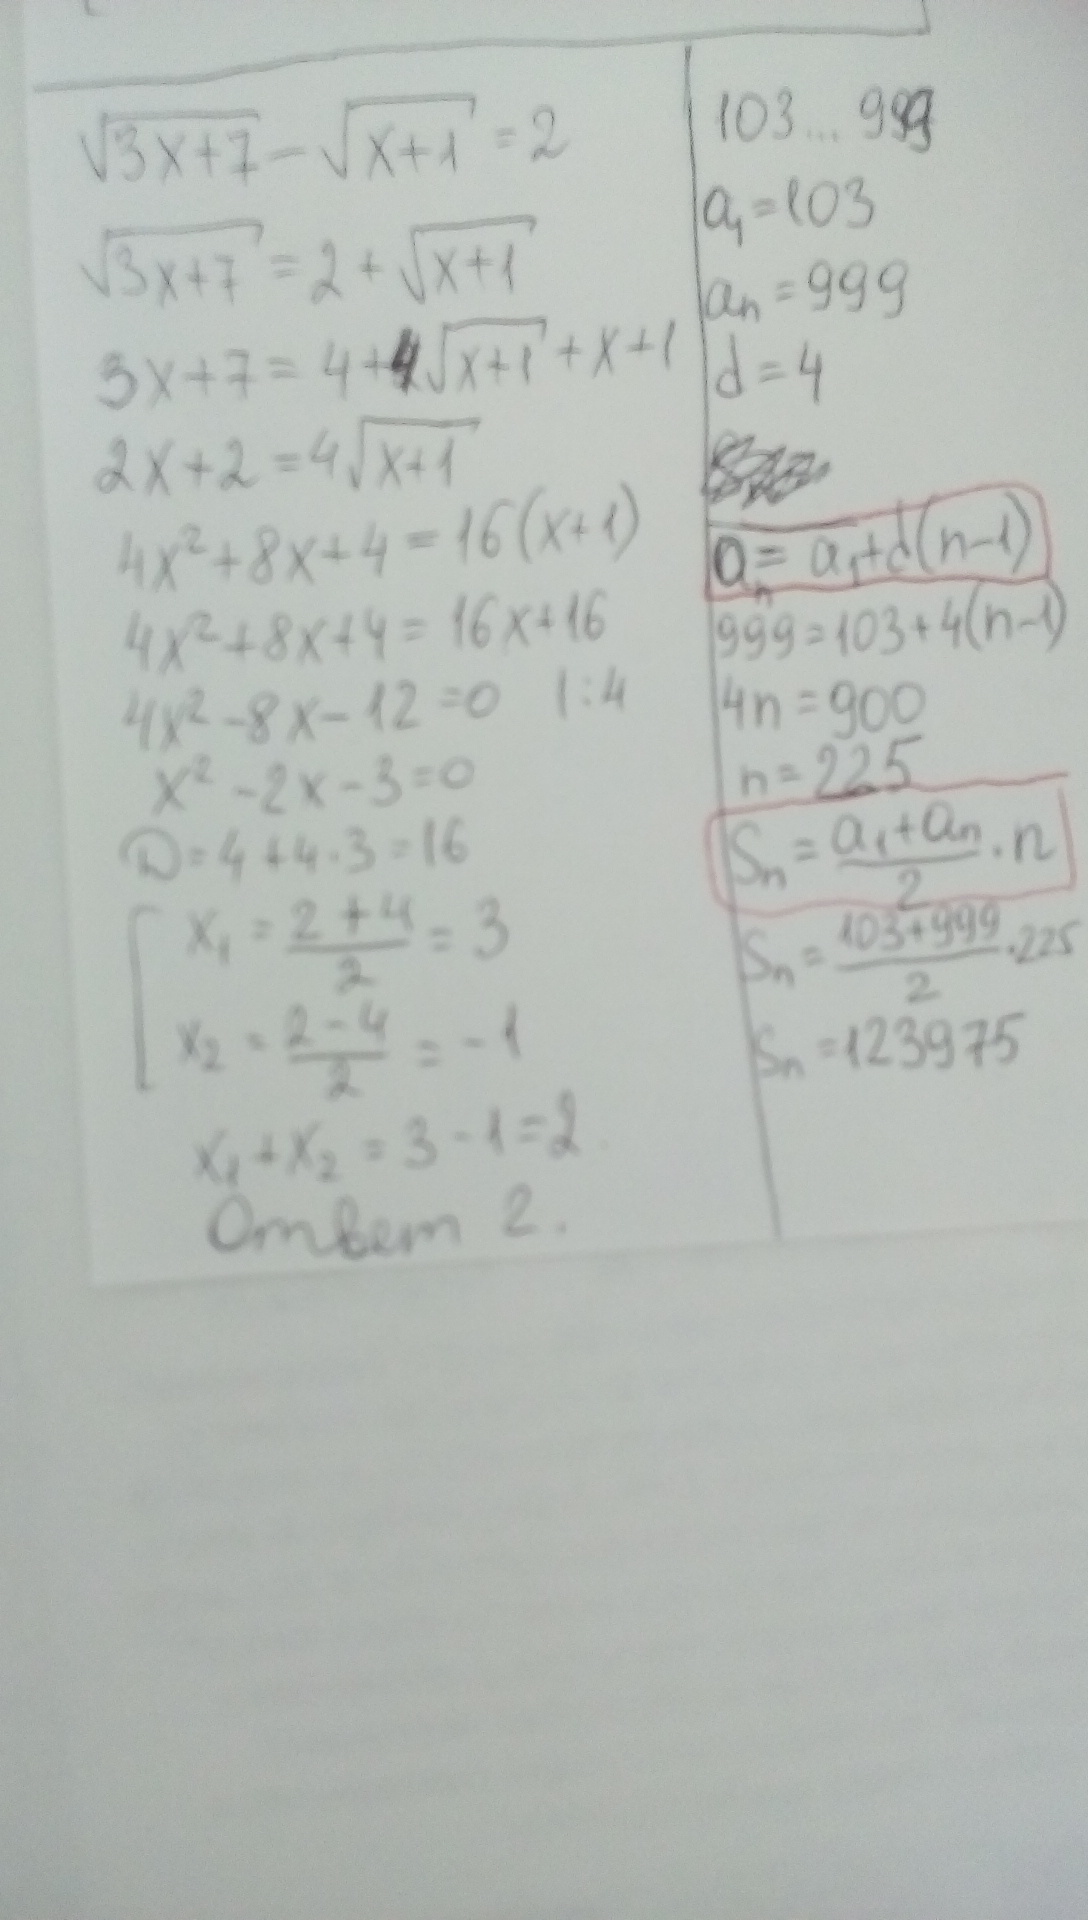 √3x+7 − √x+1 = 2
√3x+7 = 2 + √x+1
3x+7 = 4+4√x+1 + x+1
2x+2 = 4√x+1
4x²+8x+4 = 16(x+1)
4x²+8x+4 = 16x+16
4x²-8x-12=0 |:4
x²-2x-3=0
D=4+4·3=16
x₁ = 2+4/2 = 3
x₂ = 2-4/2 = -1
x₁+x₂ = 3-1=2
Ответ 2.
103...999
a₁=103
aₙ=999
d=4
aₙ = a₁+d(n-1)
999=103+4(n-1)
4n=900
n=225
Sₙ = a₁+aₙ/2 · n
Sₙ = 103+999/2 · 225
Sₙ = 123975